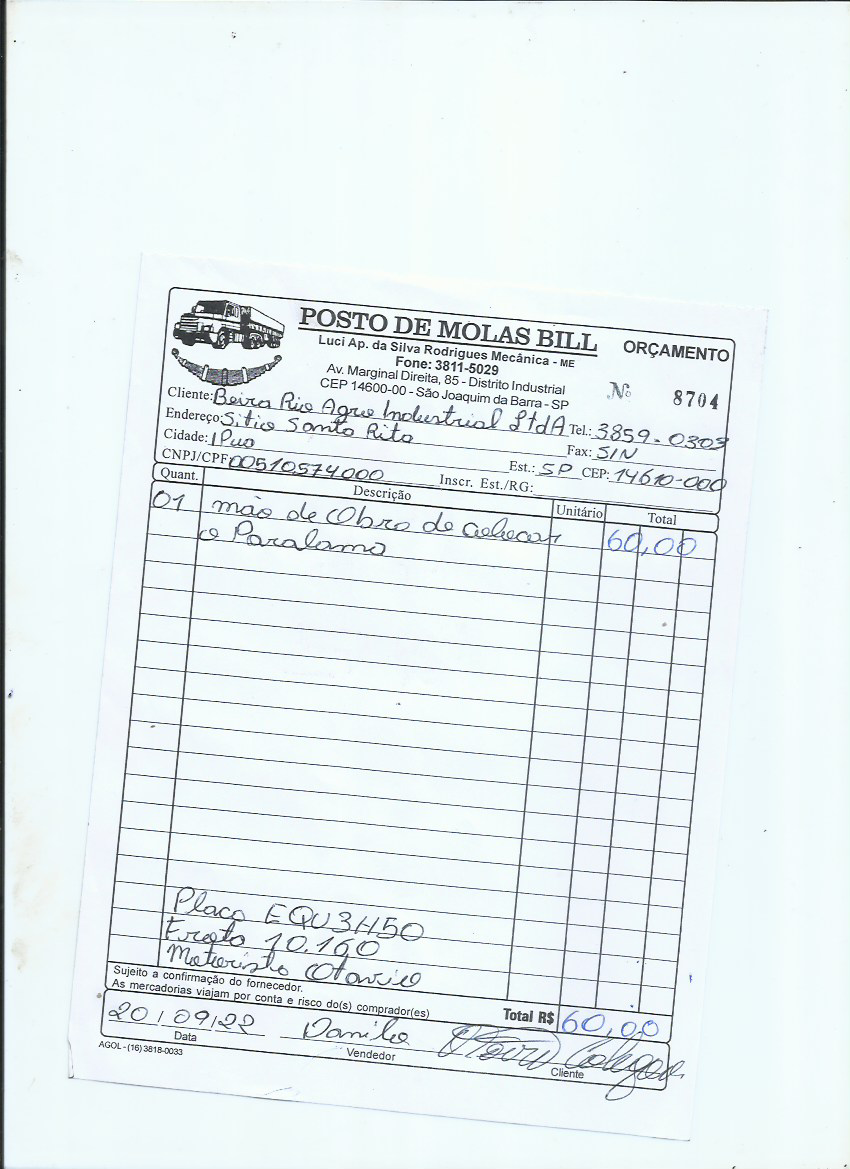 POSTO DE MOLAS BILL
ORÇAMENTO
Luci Ap. da Silva Rodrigues Mecânica - ME
Fone: 3811-5029
Av. Marginal Direita, 85 - Distrito Industrial
CEP 14600-00 - São Joaquim da Barra - SP
Nº 8704
Cliente: Beira Rio Agro Industrial LtdA Tel.: 3859-0303
Endereço: Sitio Santa Rita Fax: S/N
Cidade: Ipua Est.: SP CEP: 14610-000
CNPJ/CPF 00510574000 Inscr. Est./RG:
Quant. Descrição Unitário Total
01 mão de Obra de colocar 60,00
o Paralama
Placa EQU3H50
Frota 10.160
Motorista Otavio
Sujeito a confirmação do fornecedor.
As mercadorias viajam por conta e risco do(s) comprador(es)
Total R$ 60,00
20/09/22 Danilo
Data Vendedor Cliente
AGOL - (16) 3818-0033